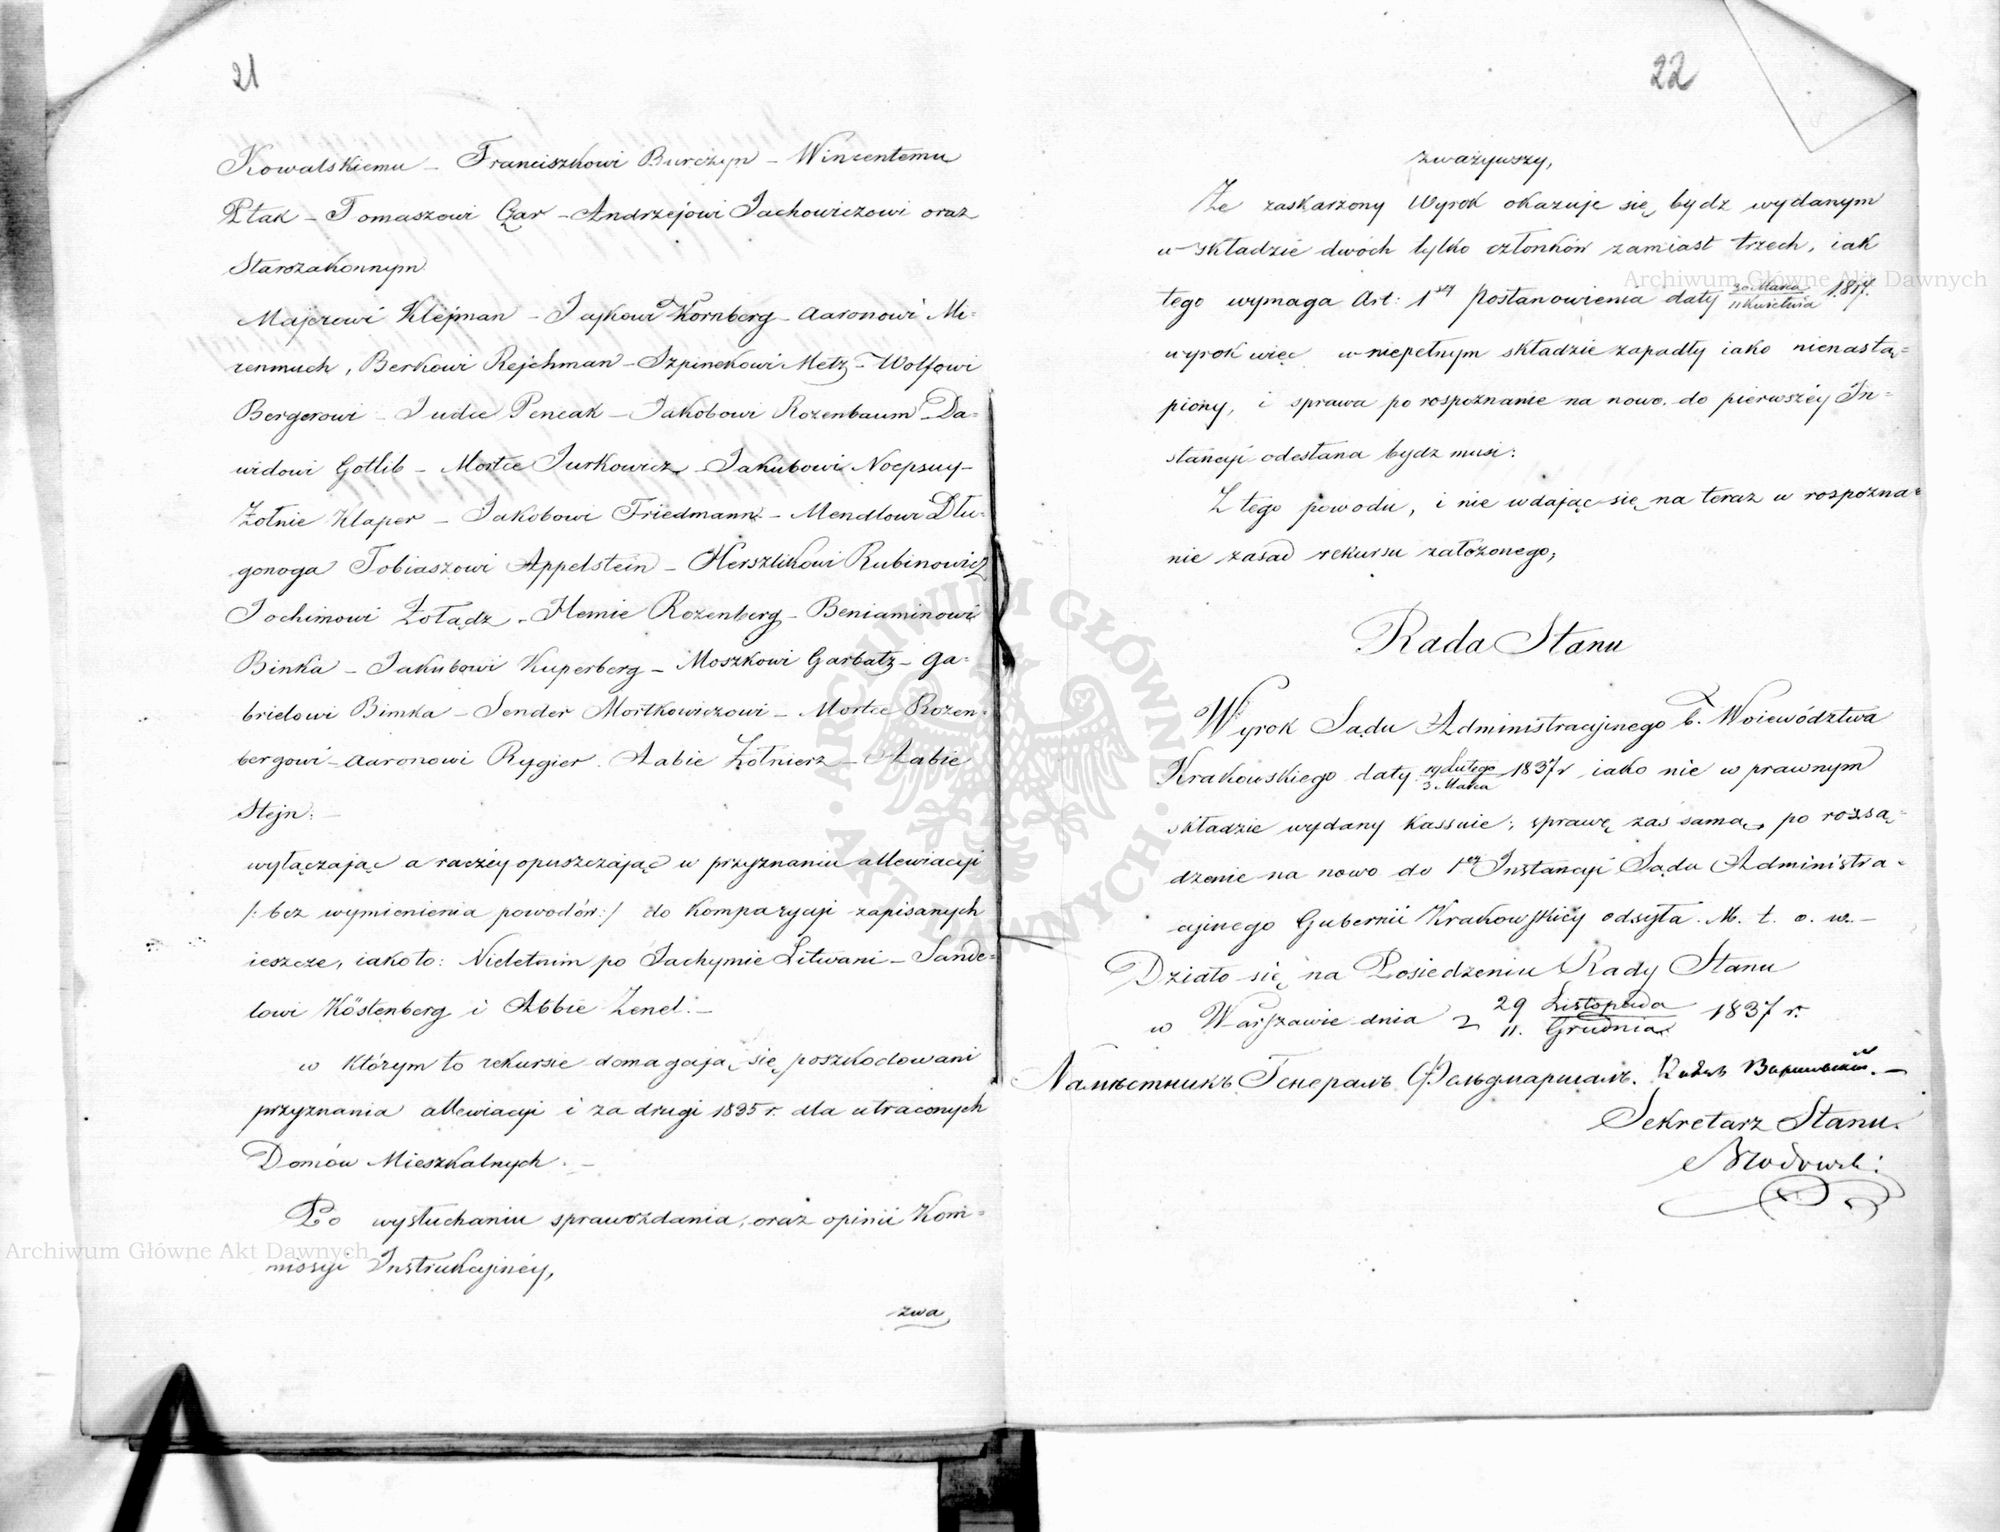 21
Kowalskiemu – Franciszkowi Burczyn – Wincentemu
Ptak – Tomaszowi Gar – Andrzejowi Jachowiczowi oraz
Starozakonnym
Majerowi Klejman – Jajkowi Kornberg – Aaronowi Mi-
renmuch, Berkowi Rejchman – Szpinekowi Metz – Wolfowi
Bergerowi – Judce Pencak – Jakobowi Rozenbaum – Da-
widowi Gotlib – Mortce Jurkowicz – Jakubowi
Zołnie Klaper – Jakobowi Friedmann – Mendlowi Dłu-
gonoga Tobiaszowi Appelstein – Herszlikowi Rubinowicz
Jochimowi Żołądz – Hemie Rozenberg – Beniaminowi
Binka – Jakubowi Kuperberg – Moszkowi Garbatz – Ga-
brielowi Bimka – Sender Mortkowiczowi – Mortce Rozen-
bergowi – Aaronowi Rygier. Aabie Żołnierz – Aabie
Stejn: –
wyłączając a raczéy opuszczając w przyznaniu allewiacyi
/: bez wymienienia powodów :/ do kompazycyi zapisanych
ieszcze, iako to: Nieletnim po Jachymie Litwani – Sande-
lowi Köstenberg i Abbie Zenel: –
w którym to rekursie domagaią się poszkodowani
przyznania allewiacyi i za drugi 1835 r. dla utraconych
Domów Mieszkalnych. –
Po wysłuchaniu sprawozdania, oraz opinii Kom-
missyi Instrukcyinéy,
zwa
22
zważywszy,
Że zaskarżony Wyrok okazuje się bydz wydanym
w składzie dwóch tylko członków zamiast trzech, iak
tego wymaga Art: 1szy Postanowienia daty 30 Marca / 11 Kwietnia 1817.
wyrok więc w niepełnym składzie zapadły iako nienastą-
piony, i sprawa po rospoznanie na nowo do pierwszéy In-
stancyi odesłana bydz musi:
Z tego powodu, i nie wdając się na teraz w rospozna-
nie zasad rekursu założonego;
Rada Stanu
Wyrok Sądu Administracyinego b. Woiewództwa
Krakowskiego daty 19 Lutego / 3 Marca 1837 r iako nie w prawnym
składzie wydany kassuie; sprawę zas samą po rozsą-
dzenie na nowo do 1ey Instancyi Sądu Administra-
cyinego Gubernii Krakowskiéy odsyła. M. t. o. w. –
Działo się na Posiedzeniu Rady Stanu
w Warszawie dnia 29 Listopada / 11. Grudnia 1837 r.
Намѣстникъ Генералъ Фельдмаршалъ. Князь Варшавскій. –
Sekretarz Stanu.
Archiwum Główne Akt Dawnych
Archiwum Główne Akt Dawnych
ARCHIWUM GŁÓWNE · AKT DAWNYCH ·